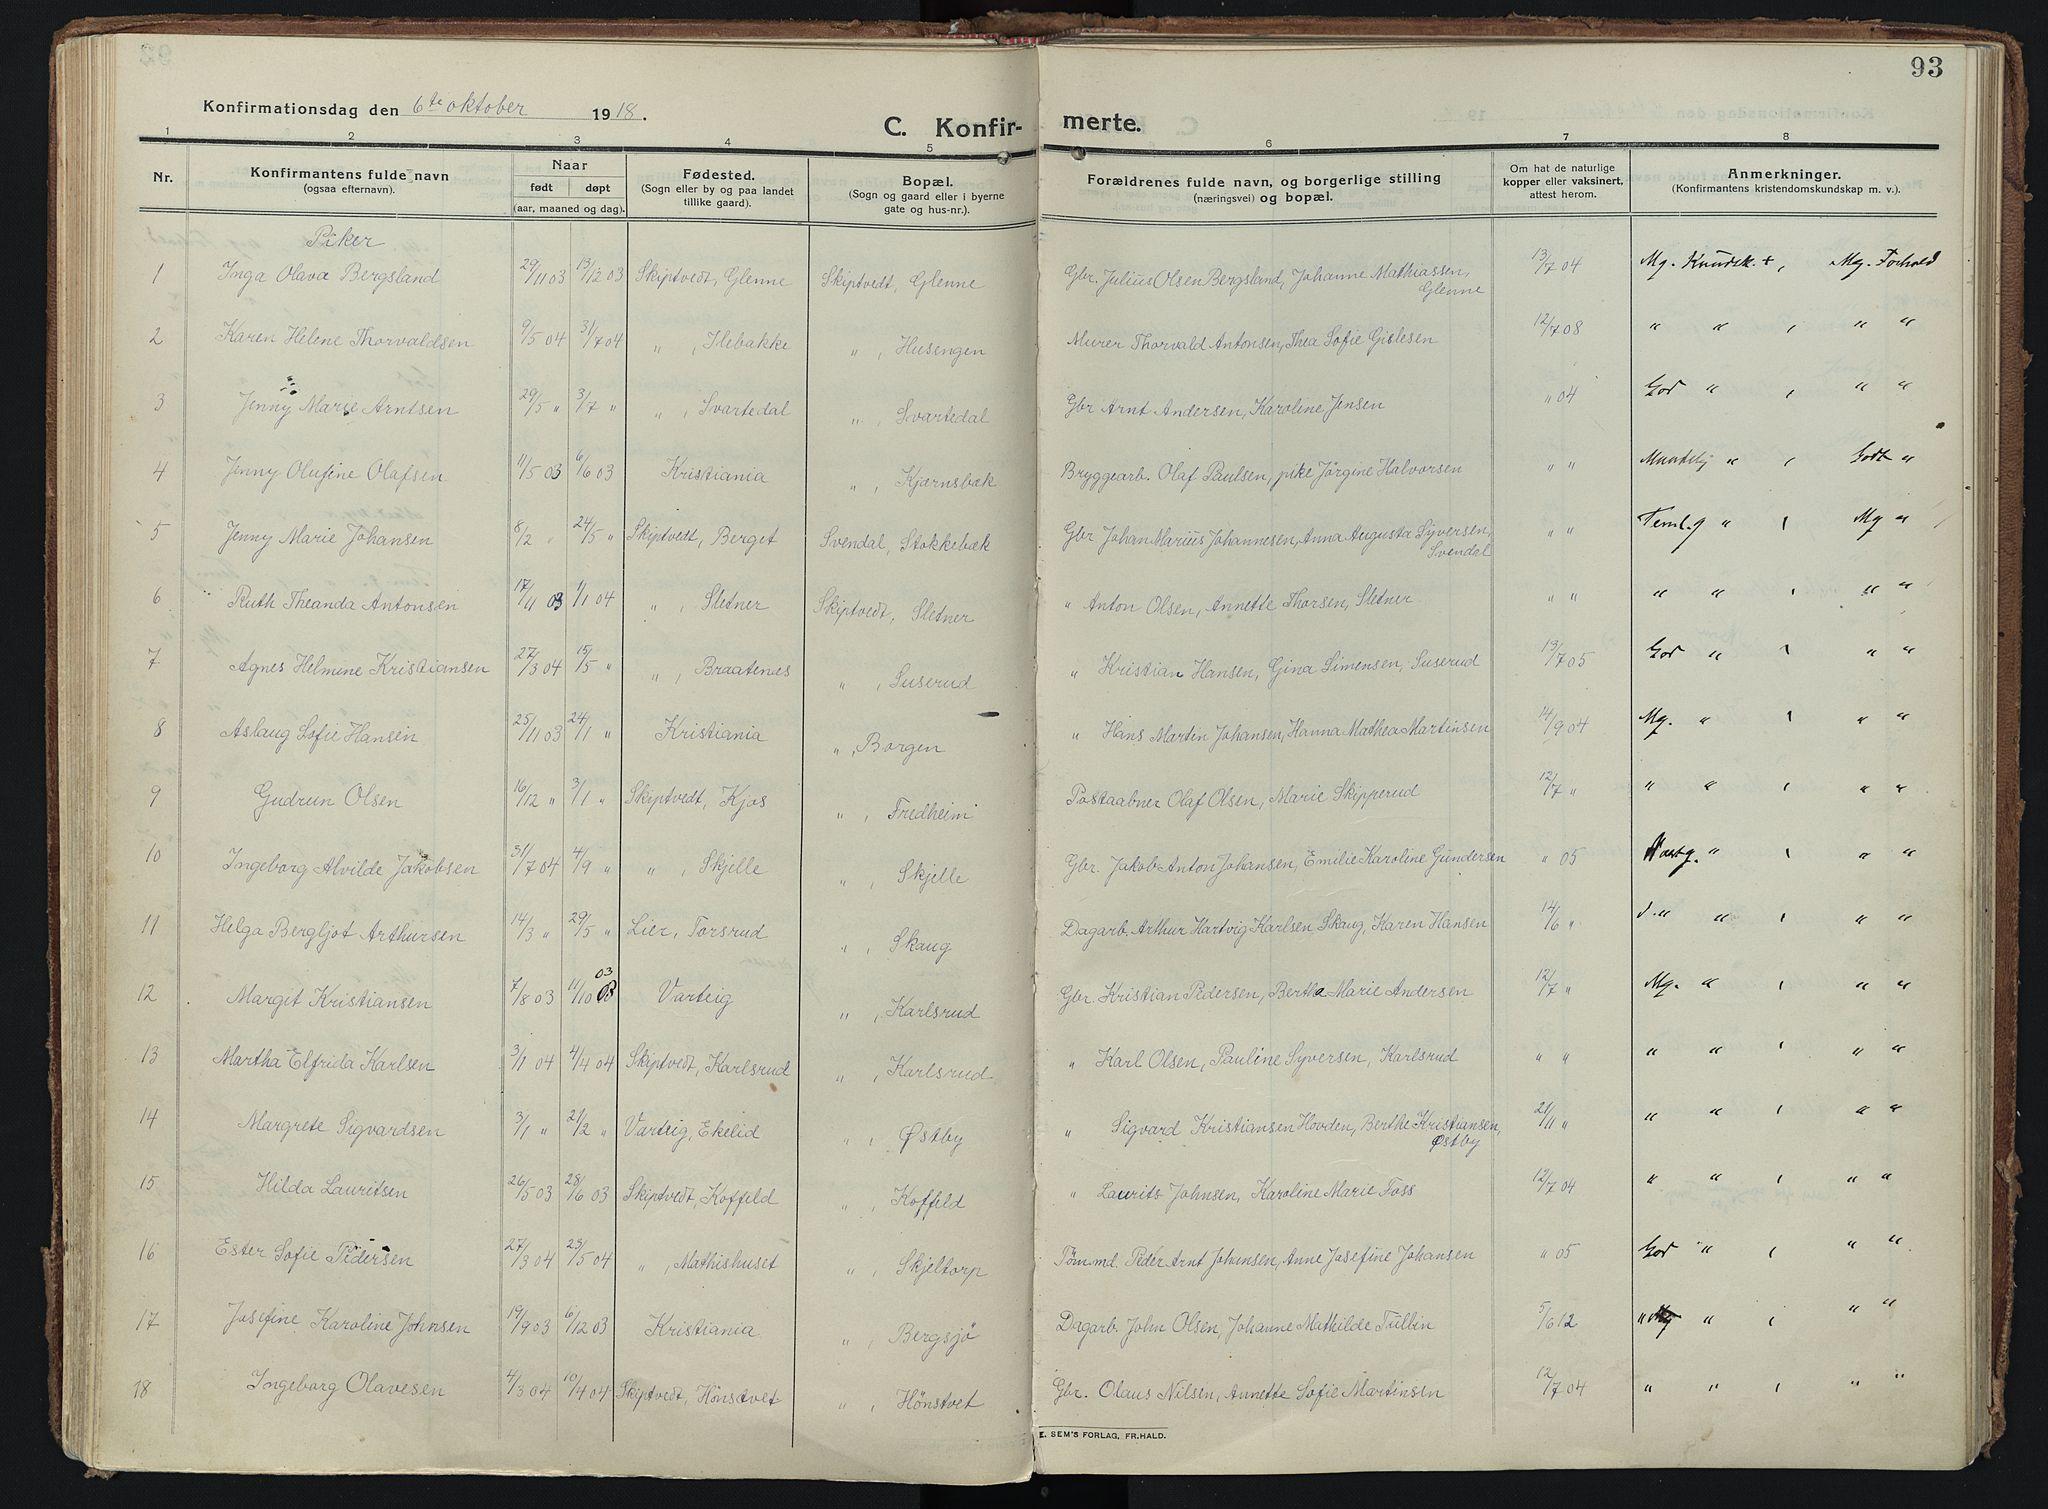 93
Konfirmationsdag den 6te oktober 1918.
C. Konfirmerte.
1 2 3 4 5 6 7 8
Nr. Konfirmantens fulde navn (ogsaa efternavn). Naar født døpt (aar, maaned og dag). Fødested. (Sogn eller by og paa landet tillike gaard). Bopæl. (Sogn og gaard eller i byerne gate og hus-nr.). Forældrenes fulde navn, og borgerlige stilling (næringsvei) og bopæl. Om hat de naturlige kopper eller vaksinert, attest herom. Anmerkninger. (Konfirmantens kristendomskundskap m. v.).
Piker
1 Inga Olava Bergsland 29/11 03 13/12 03 Skiptvedt, Glenne Skiptvedt, Glenne Gbr. Julius Olsen Bergsland, Johanne Mathiassen, Glenne 13/7 04 Mg. Kundsk. , Mg. Forhold
2 Karen Helene Thorvaldsen 9/5 04 31/7 04 " , Ilebakke " , Husengen Murer Thorvald Antonsen, Thea Sofie Gislesen 12/7 08 " " , " "
3 Jenny Marie Arntsen 29/5 " 3/7 " " , Svartedal " , Svartedal Gbr Arnt Andersen, Karoline Jensen " 04 God " , " "
4 Jenny Olufine Olafsen 11/5 03 6/6 03 Kristiania " , Kjærnsbæk Bryggearb. Olaf Paulsen, pike Jörgine Halvorsen " " " , Godt "
5 Jenny Marie Johansen 8/2 " 24/5 " Skiptvedt, Berget Svendal, Stokkebæk Gbr Johan Marius Johannesen, Anna Augusta Syversen, Svendal " " Teml. g " , Mg "
6 Ruth Theanda Antonsen 17/11 03 1/1 04 " , Sletner Skiptvedt, Sletner " Anton Olsen, Annette Thorsen, Sletner " " " " , " "
7 Agnes Helmine Kristiansen 27/3 04 15/5 " " , Braatenes " , Suserud " Kristian Hansen, Gina Simensen, Suserud 13/7 05 God " , " "
8 Aslaug Sofie Hansen 25/11 03 24/1 " Kristiania " , Borgen " Hans Martin Johansen, Hanna Mathea Martinsen 14/9 04 Mg. " , " "
9 Gudrun Olsen 16/12 " 3/1 " Skiptvedt, Kjos " , Fredheim Postaabner Olaf Olsen, Marie Skipperud 12/7 " " " , " "
10 Ingeborg Alvilde Jakobsen 31/7 04 4/9 " " , Skjelle " , Skjelle Gbr. Jakob Anton Johansen, Emilie Karoline Gundersen " 05 " , " "
11 Helga Bergljot Arthursen 14/3 " 29/5 " Lier, Torsrud " , Skaug Dagarb. Arthur Hartvig Karlsen, Skaug, Karen Hansen 14/6 " " , " "
12 Margit Kristiansen 7/8 03 11/10 03 Varteig " , Karlsrud Gbr. Kristian Pedersen, Bertha Marie Andersen 12/7 " Mg. " , " "
13 Martha Elfrida Karlsen 3/1 04 4/4 04 Skiptvedt, Karlsrud " , Karlsrud " Karl Olsen, Pauline Syversen, Karlsrud " " " " , " "
14 Margrete Sigvardsen 3/1 " 21/2 " Varteig, Ekelid " , Østby " Sigvard Kristiansen Hovden, Berthe Kristiansen, Østby 21/11 " " " , " "
15 Hilda Lauritsen 26/5 03 28/6 03 Skiptvedt, Koffeld " , Koffeld " Laurits Johnsen, Karoline Marie Foss 12/7 04 " " , " "
16 Ester Sofie Pedersen 27/3 04 23/5 04 " , Mathishuset " , Skjeltorp Tömmd. Peder Arnt Johansen, Anne Josefine Johansen " 05 God " , " "
17 Josefine Karoline Johnsen 19/9 03 6/12 03 Kristiania " , Bergsjö Dagarb. John Olsen, Johanne Mathilde Tullin 5/6 12 " " , " "
18 Ingeborg Olavesen 4/3 04 10/4 04 Skiptvedt, Hönstvet " , Hönstvet Gbr. Olaus Nilsen, Annette Sofie Martinsen 12/7 04 " " , " "
E. SEM'S FORLAG, FR.HALD.